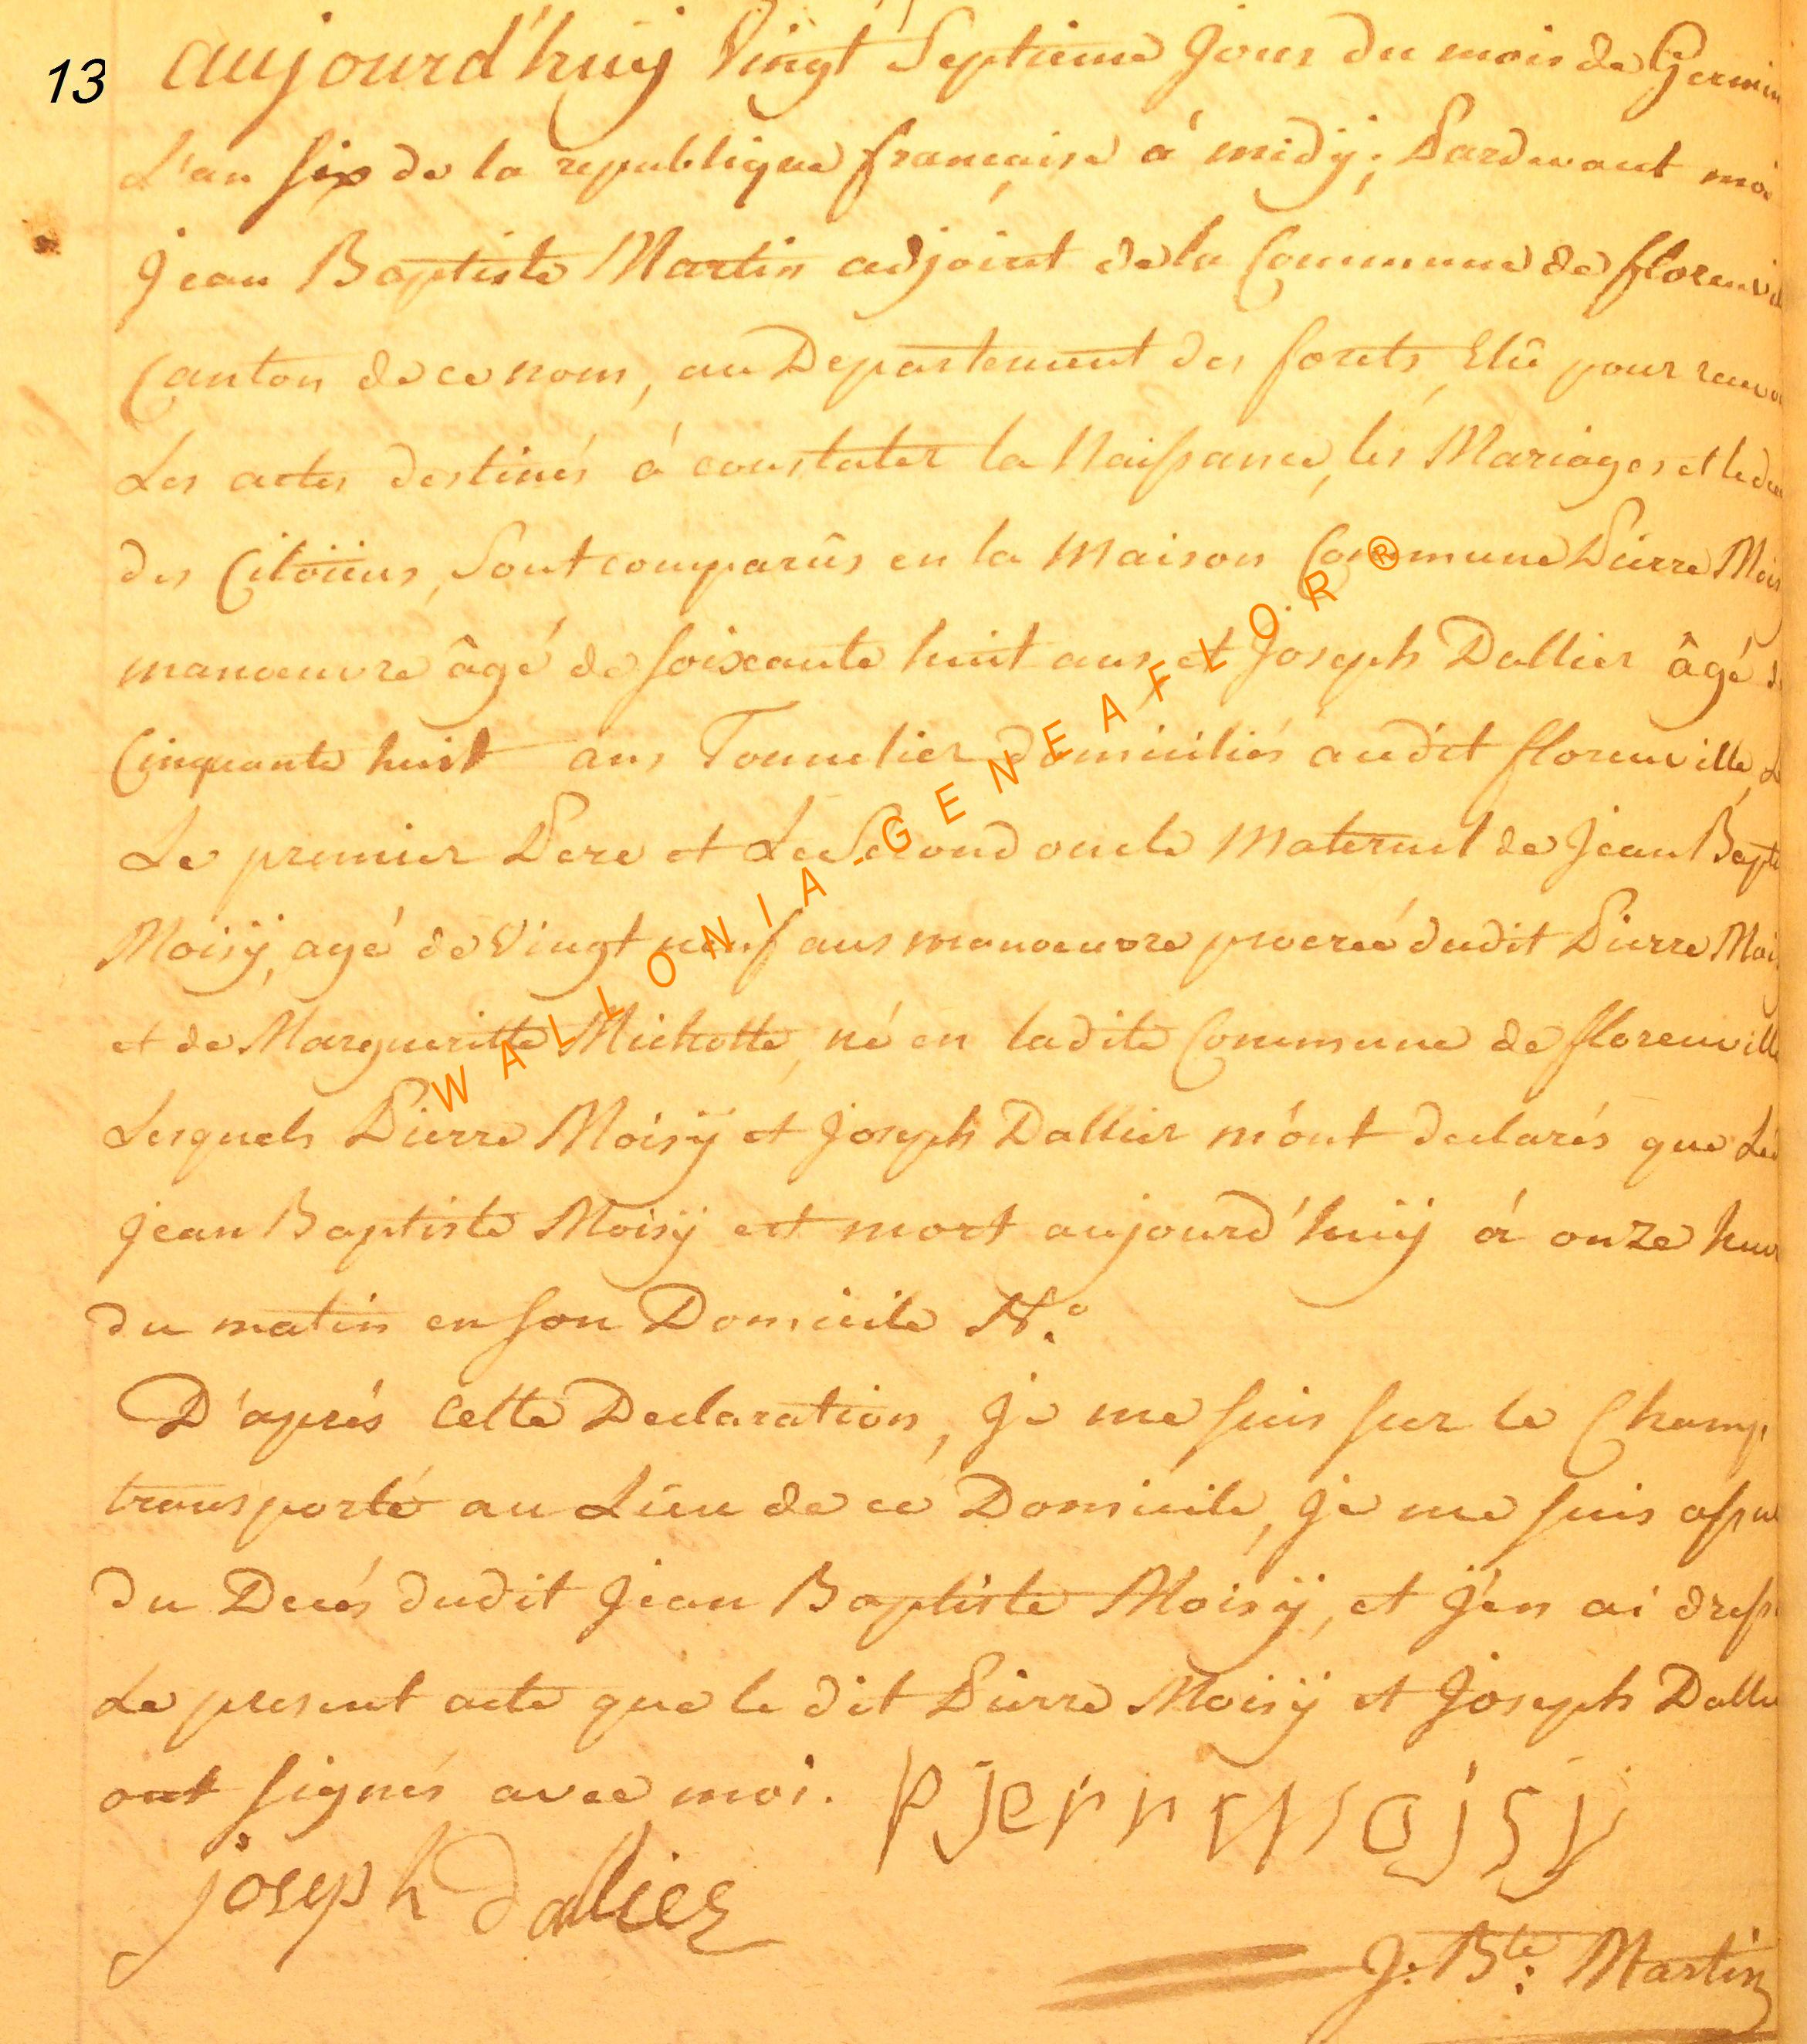 13
aujourd'huij Vingt Septieme jour du mois de Germin
L'an six de la republique française à midÿ; Pardevant moi
jean Baptiste Martin adjoint de la Commune de florenvil
Canton de ce nom, au Departement des forets, Elû pour recevo
Les actes destinés à constater la Naissance, les Mariages et le de
des Citoïens, Sont comparûs en la Maison Commune Pierre Mois
manoeuvre âgé de soixante huit ans, et Joseph Dallier âgé d
Cinquante huit ans Tonnelier domiciliés audit florenville,
Le premier Pere et Le Second oncle Maternel de Jean Bapte
Moisÿ, agé de Vingt neuf ans manoeuvre procreé dudit Pierre Moi
et de Margueritte Michotte, né en ladite Commune de florenville
Lesquels Pierre Moisÿ et Joseph Dallier m'ont declarés que Led
jean Baptiste Moisÿ est mort aujourd'huij à onze heur
du matin en son Domicile N.°
D'aprés cette Declaration, je me suis sur le Champ
transporté au Lieu de ce Domicile, je me suis assu
du Decés dudit Jean Baptiste Moisÿ, et j'en ai dress
Le present acte que le dit Pierre Moisÿ et Joseph Dalli
ont signés avec moi. pjerre mojsy
joseph dallier
J: Bte: Martin
WALLONIA-GENEAFLOR ®